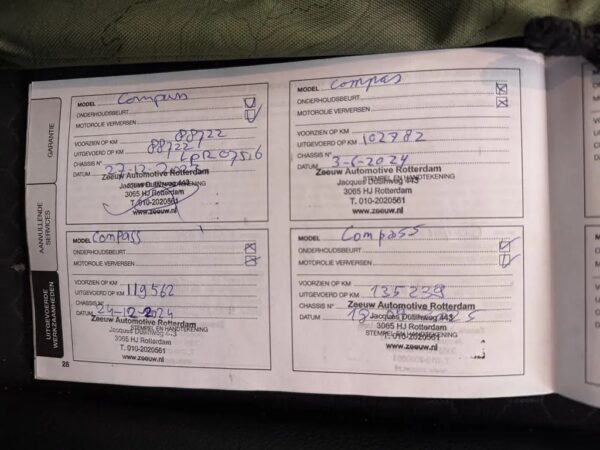 GARANTIE
AANVULLENDE
SERVICES
UITGEVOERDE
WERKZAAMHEDEN
MODEL Compass
ONDERHOUDSBEURT
MOTOROLIE VERVERSEN
VOORZIEN OP KM 88722
UITGEVOERD OP KM 88722
CHASSIS N°
DATUM 27-12-
Zeeuw Automotive Rotterdam
Jacques Dutilhweg 443
3065 HJ Rotterdam
T. 010-2020561
www.zeeuw.nl
MODEL Compas
ONDERHOUDSBEURT
MOTOROLIE VERVERSEN
VOORZIEN OP KM
UITGEVOERD OP KM 102782
CHASSIS N°
DATUM 3-6-2024
Zeeuw Automotive Rotterdam
STEMPEL EN HANDTEKENING
Jacques Dutilhweg 443
3065 HJ Rotterdam
T. 010-2020561
www.zeeuw.nl
Compass
ONDERHOUDSBEURT
MOTOROLIE VERVERSEN
VOORZIEN OP KM
UITGEVOERD OP KM 119562
CHASSIS N°
DATUM 24-12-2024
Zeeuw Automotive Rotterdam
STEMPEL EN HANDTEKENING
Jacques Dutilhweg 443
3065 HJ Rotterdam
T. 010-2020561
www.zeeuw.nl
MODEL Compass
ONDERHOUDSBEURT
MOTOROLIE VERVERSEN
VOORZIEN OP KM
UITGEVOERD OP KM 135239
CHASSIS N°
DATUM
Zeeuw Automotive Rotterdam
Jacques Dutilhweg 443
STEMPEL EN HANDTEKENING
3065 HJ Rotterdam
T. 010-2020561
www.zeeuw.nl
28